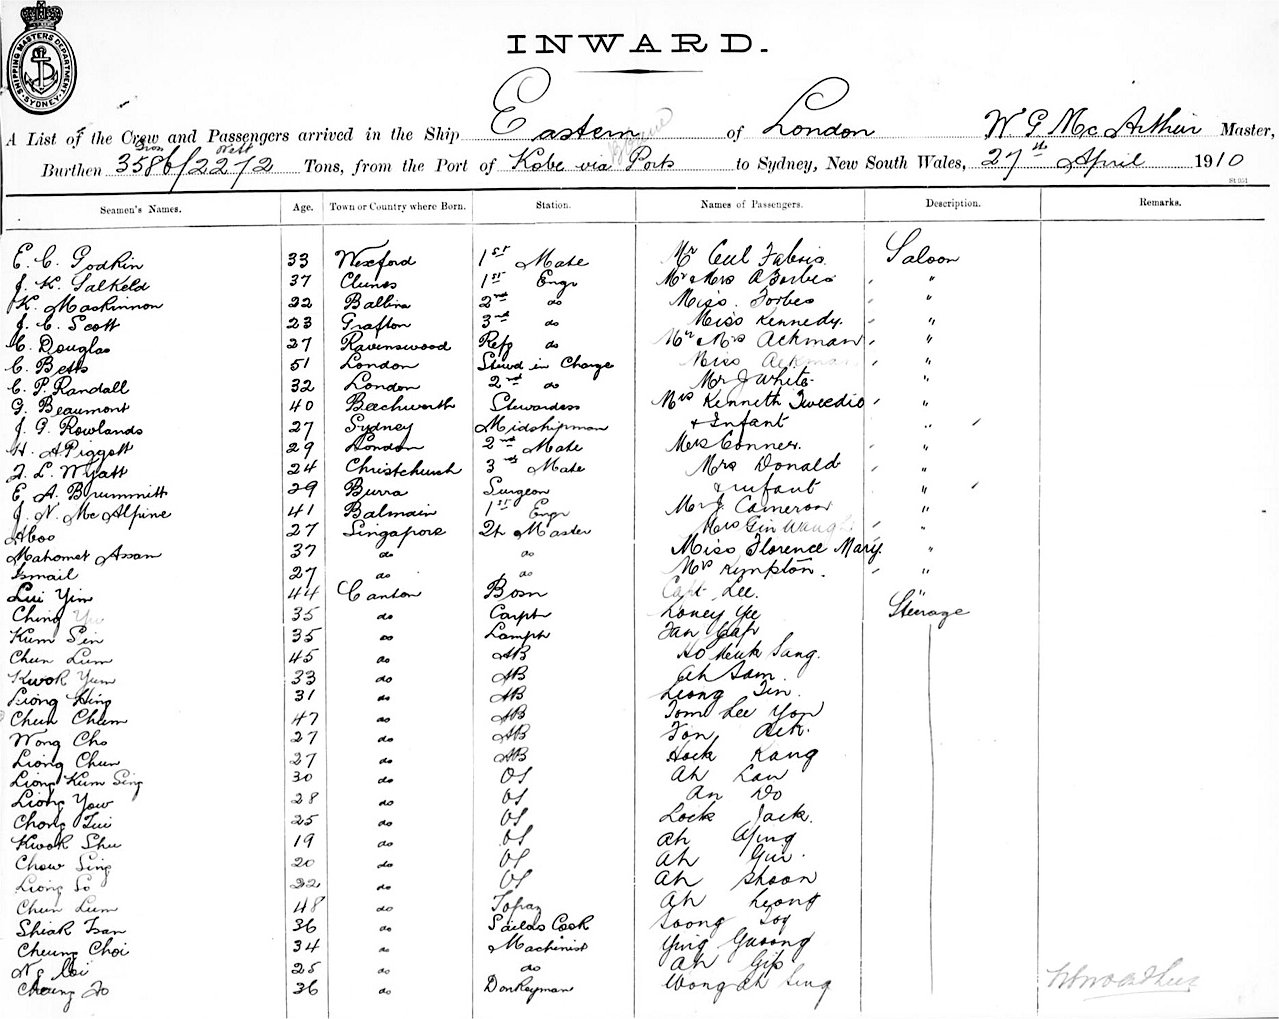 SHIPPING MASTERS DEPARTMENT
SYDNEY
INWARD.
A List of the Crew and Passengers arrived in the Ship Eastern of London W. G. McArthur Master,
Burthen 3586/2272 Tons, from the Port of Kobe via Ports to Sydney, New South Wales, 27th April 1910
St 951
Seamen's Names. Age. Town or Country where Born. Station. Names of Passengers. Description. Remarks.
E. C. Godkin 33 Wexford 1st Mate Mr Cecil Fabris Saloon
J. K. Salkeld 37 Clunes 1st Engr Mr & Mrs A Forbes "
K. Mackinnon 22 Ballina 2nd do Miss Forbes "
J. C. Scott 23 Grafton 3rd do Miss Kennedy. "
C. Douglas 27 Ravenswood Refg do Mr & Mrs Ackman "
C. Betts 51 London Stewd in Charge Miss Ackman "
C. P. Randall 32 London 2nd do Mr J White "
G. Beaumont 40 Beechworth Stewardess Mrs Kenneth Tweedie "
J. G. Rowlands 27 Sydney Midshipman & Infant "
H. A Piggott 29 London 2nd Mate Mrs Conner. "
F. L. Wyatt 24 Christchurch 3rd Mate Mrs Donald "
E. A. Brummitt 29 Burra Surgeon & infant "
J. N. McAlpine 41 Balmain 1st Engr Mr J. Cameron "
Aboo 27 Singapore Qr Master Mrs Gin Waugh "
Mahomet Assan 37 do do Miss Florence Mary. "
Ismail 27 do do Mr Kimpton. "
Lui Yim 44 Canton Bosn Capt Lee. "
Ching 35 do Carptr Loney Yee Steerage
Kum Sin 35 do Lamptr Tan Yap
Chun Lum 45 do AB Ho Meuk Sang.
Kwok Yum 33 do AB Ah Sam.
Liong Hing 31 do AB Leong Tin.
Chun Chum 47 do AB Tom Lee Yon
Wong Cho 27 do AB Fon Ack.
Liong Chun 27 do AB Hock Kang
Liong Kum Sing 30 do OS Ah Lan
Liong Yow 28 do OS An Do
Chong Tui 25 do OS Lock Jack.
Kwok Shu 19 do OS Ah Ging
Chow Sing 20 do OS Ah Gui.
Liong So 22 do OS Ah Shoon
Chun Lum 48 do Topaz Ah Leong
Shiak Tsan 36 do Sailors Cook Soong Toy
Cheung Choi 34 do Machinist Ying Guoong
Ng Loi 25 do do Ah Gip
Cheung Fo 36 do Donkeyman Wong Ah Sing